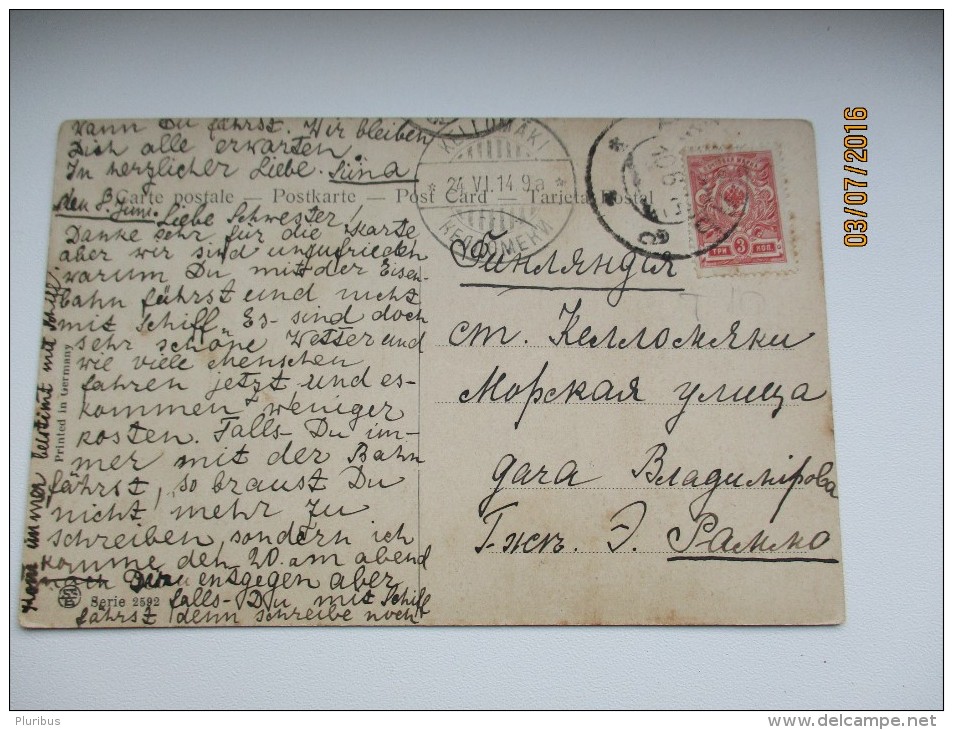 wann Du fährst. Wir bleiben
Dich alle erwarten
In herzlicher Liebe. Siina
Carte postale — Postkarte — Post Card — Tarjeta Postal
den 8. Juni. Liebe Schwester!
Danke sehr für die Karte
aber wir sind unzufrieden
warum Du mit der Eisen-
bahn fährst und nicht
mit Schiff. Es sind doch
sehr schöne Wetter und
wie viele Menschen
fahren jetzt und es
kommen weniger
kosten. Falls Du im-
mer mit der Bahn
fährst, so braust Du
nicht mehr zu
schreiben, sondern ich
komme den 20. am abend
entgegen aber
falls Du mit Schiff
fährst denn schreibe noch
Kom immer bestimt mit Schiff!
Printed in Germany
Serie 2592
KELLOMÄKI
24.VI.14 9a
ТРИ 3 КОП.
Финляндія
ст. Келломяки
Морская улица
дача Владимірова
Г-жѣ. Э. Раммо
03/07/2016
Pluribus
www.delcampe.net